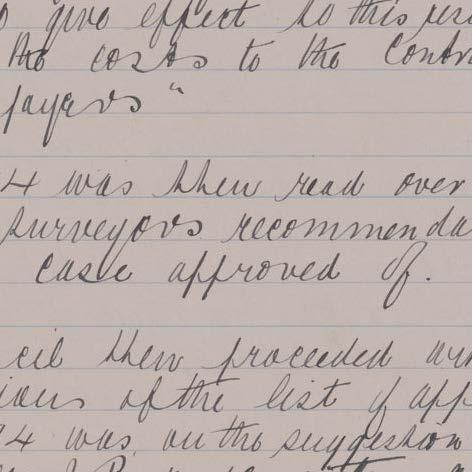 give effect to this res
the costs to the Contr
payers"
4 was then read over
surveyors recommenda
case approved of.
cil then proceeded wi
ions of the list of app
94 was on the suggestion